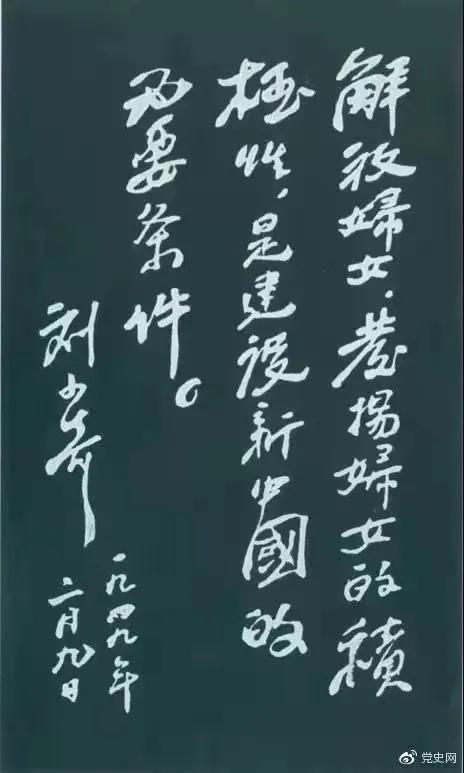 解放婦女、發揚婦女的積
極性，是建設新中國的
必要条件。
刘少奇
一九四九年
二月九日
党史网